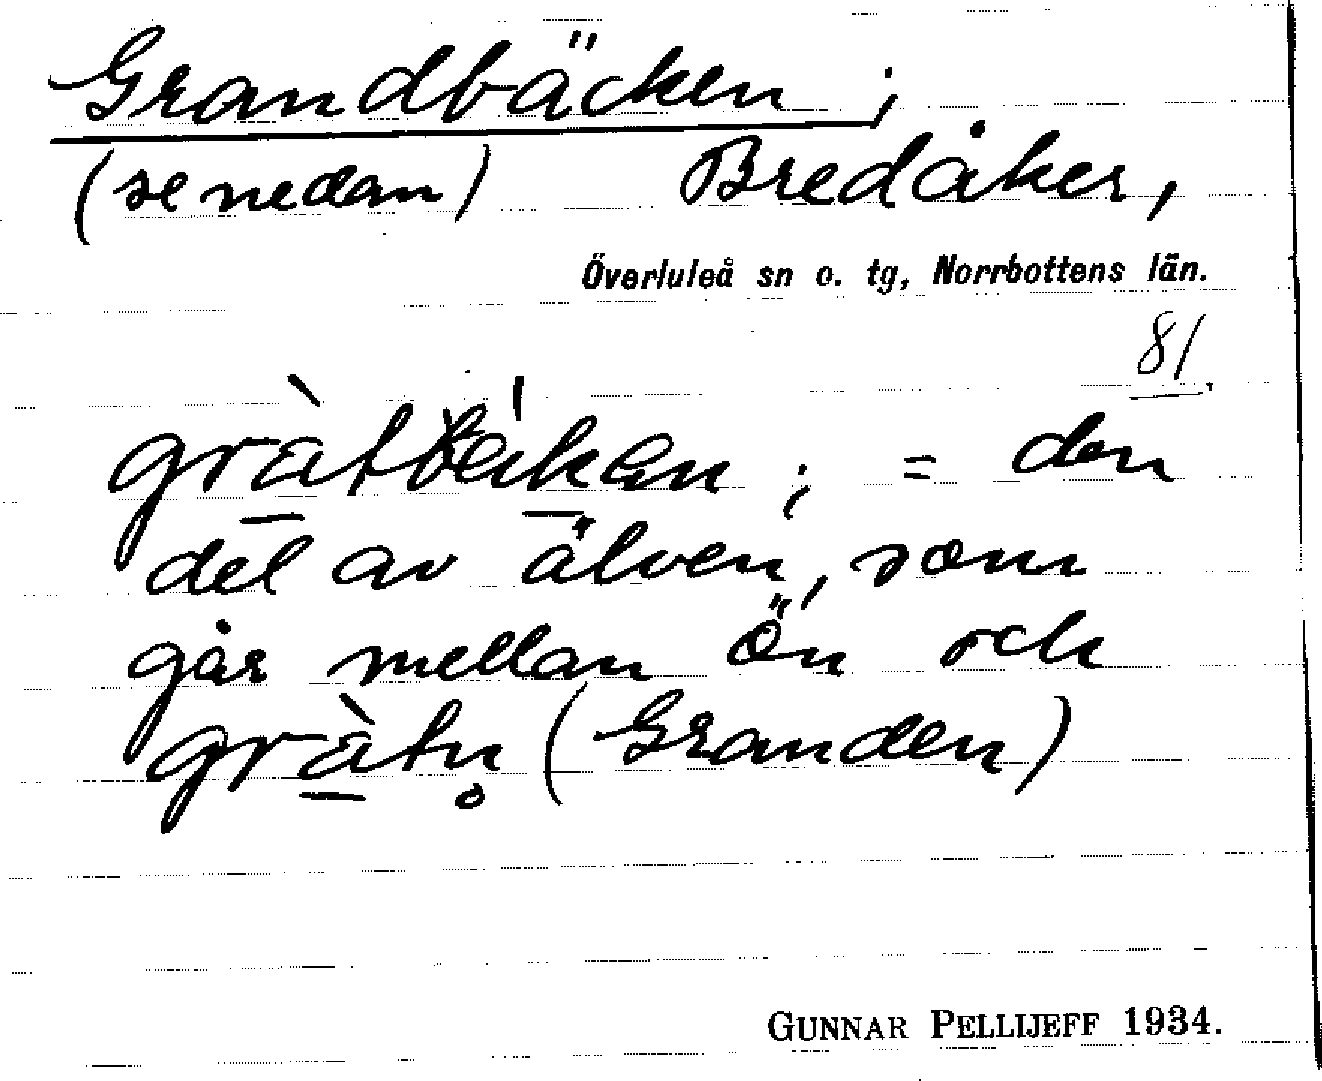 Grandbäcken;
(se nedan) Bredåker,
Överluleå sn o. tg, Norrbottens län.
81.
; = den
del av älven, som
går mellan Ön och
(Granden)
GUNNAR PELLIJEFF 1934.